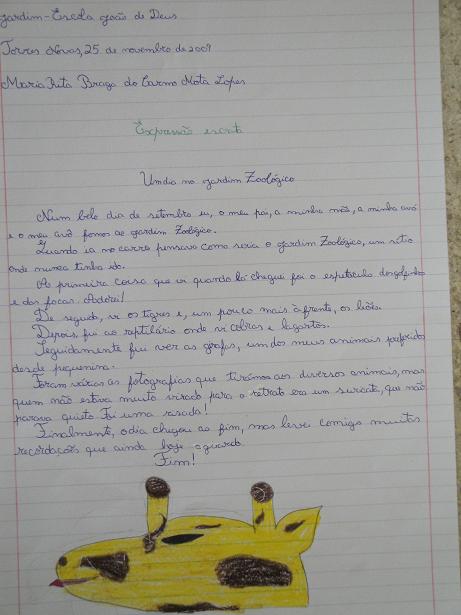 Jardim-Escola João de Deus
Torres Novas, 25 de novembro de 2009
Maria Rita Braga do Carmo Mota Lopes
Expressão escrita
Um dia no Jardim Zoológico
Num belo dia de setembro eu, o meu pai, a minha mãe, a minha avó
e o meu avô fomos ao Jardim Zoológico.
Quando ia no carro pensava como seria o Jardim Zoológico, um sítio
onde nunca tinha ido.
A primeira coisa que vi quando lá cheguei foi o espetáculo dos golfinhos
e das focas. Adorei!
De seguida, vi os tigres e, um pouco mais à frente, os liões.
Depois, fui ao reptilário onde vi cobras e lagartos.
Seguidamente fui ver as girafas, um dos meus animais preferidos
desde pequenina.
Foram várias as fotografias que tirámos aos diversos animais, mas
quem não estava muito virado para o retrato era um suricata, que não
parava quieto. Foi uma risada!
Finalmente, o dia chegou ao fim, mas levei comigo muitas
recordações que ainda hoje guardo.
Fim!